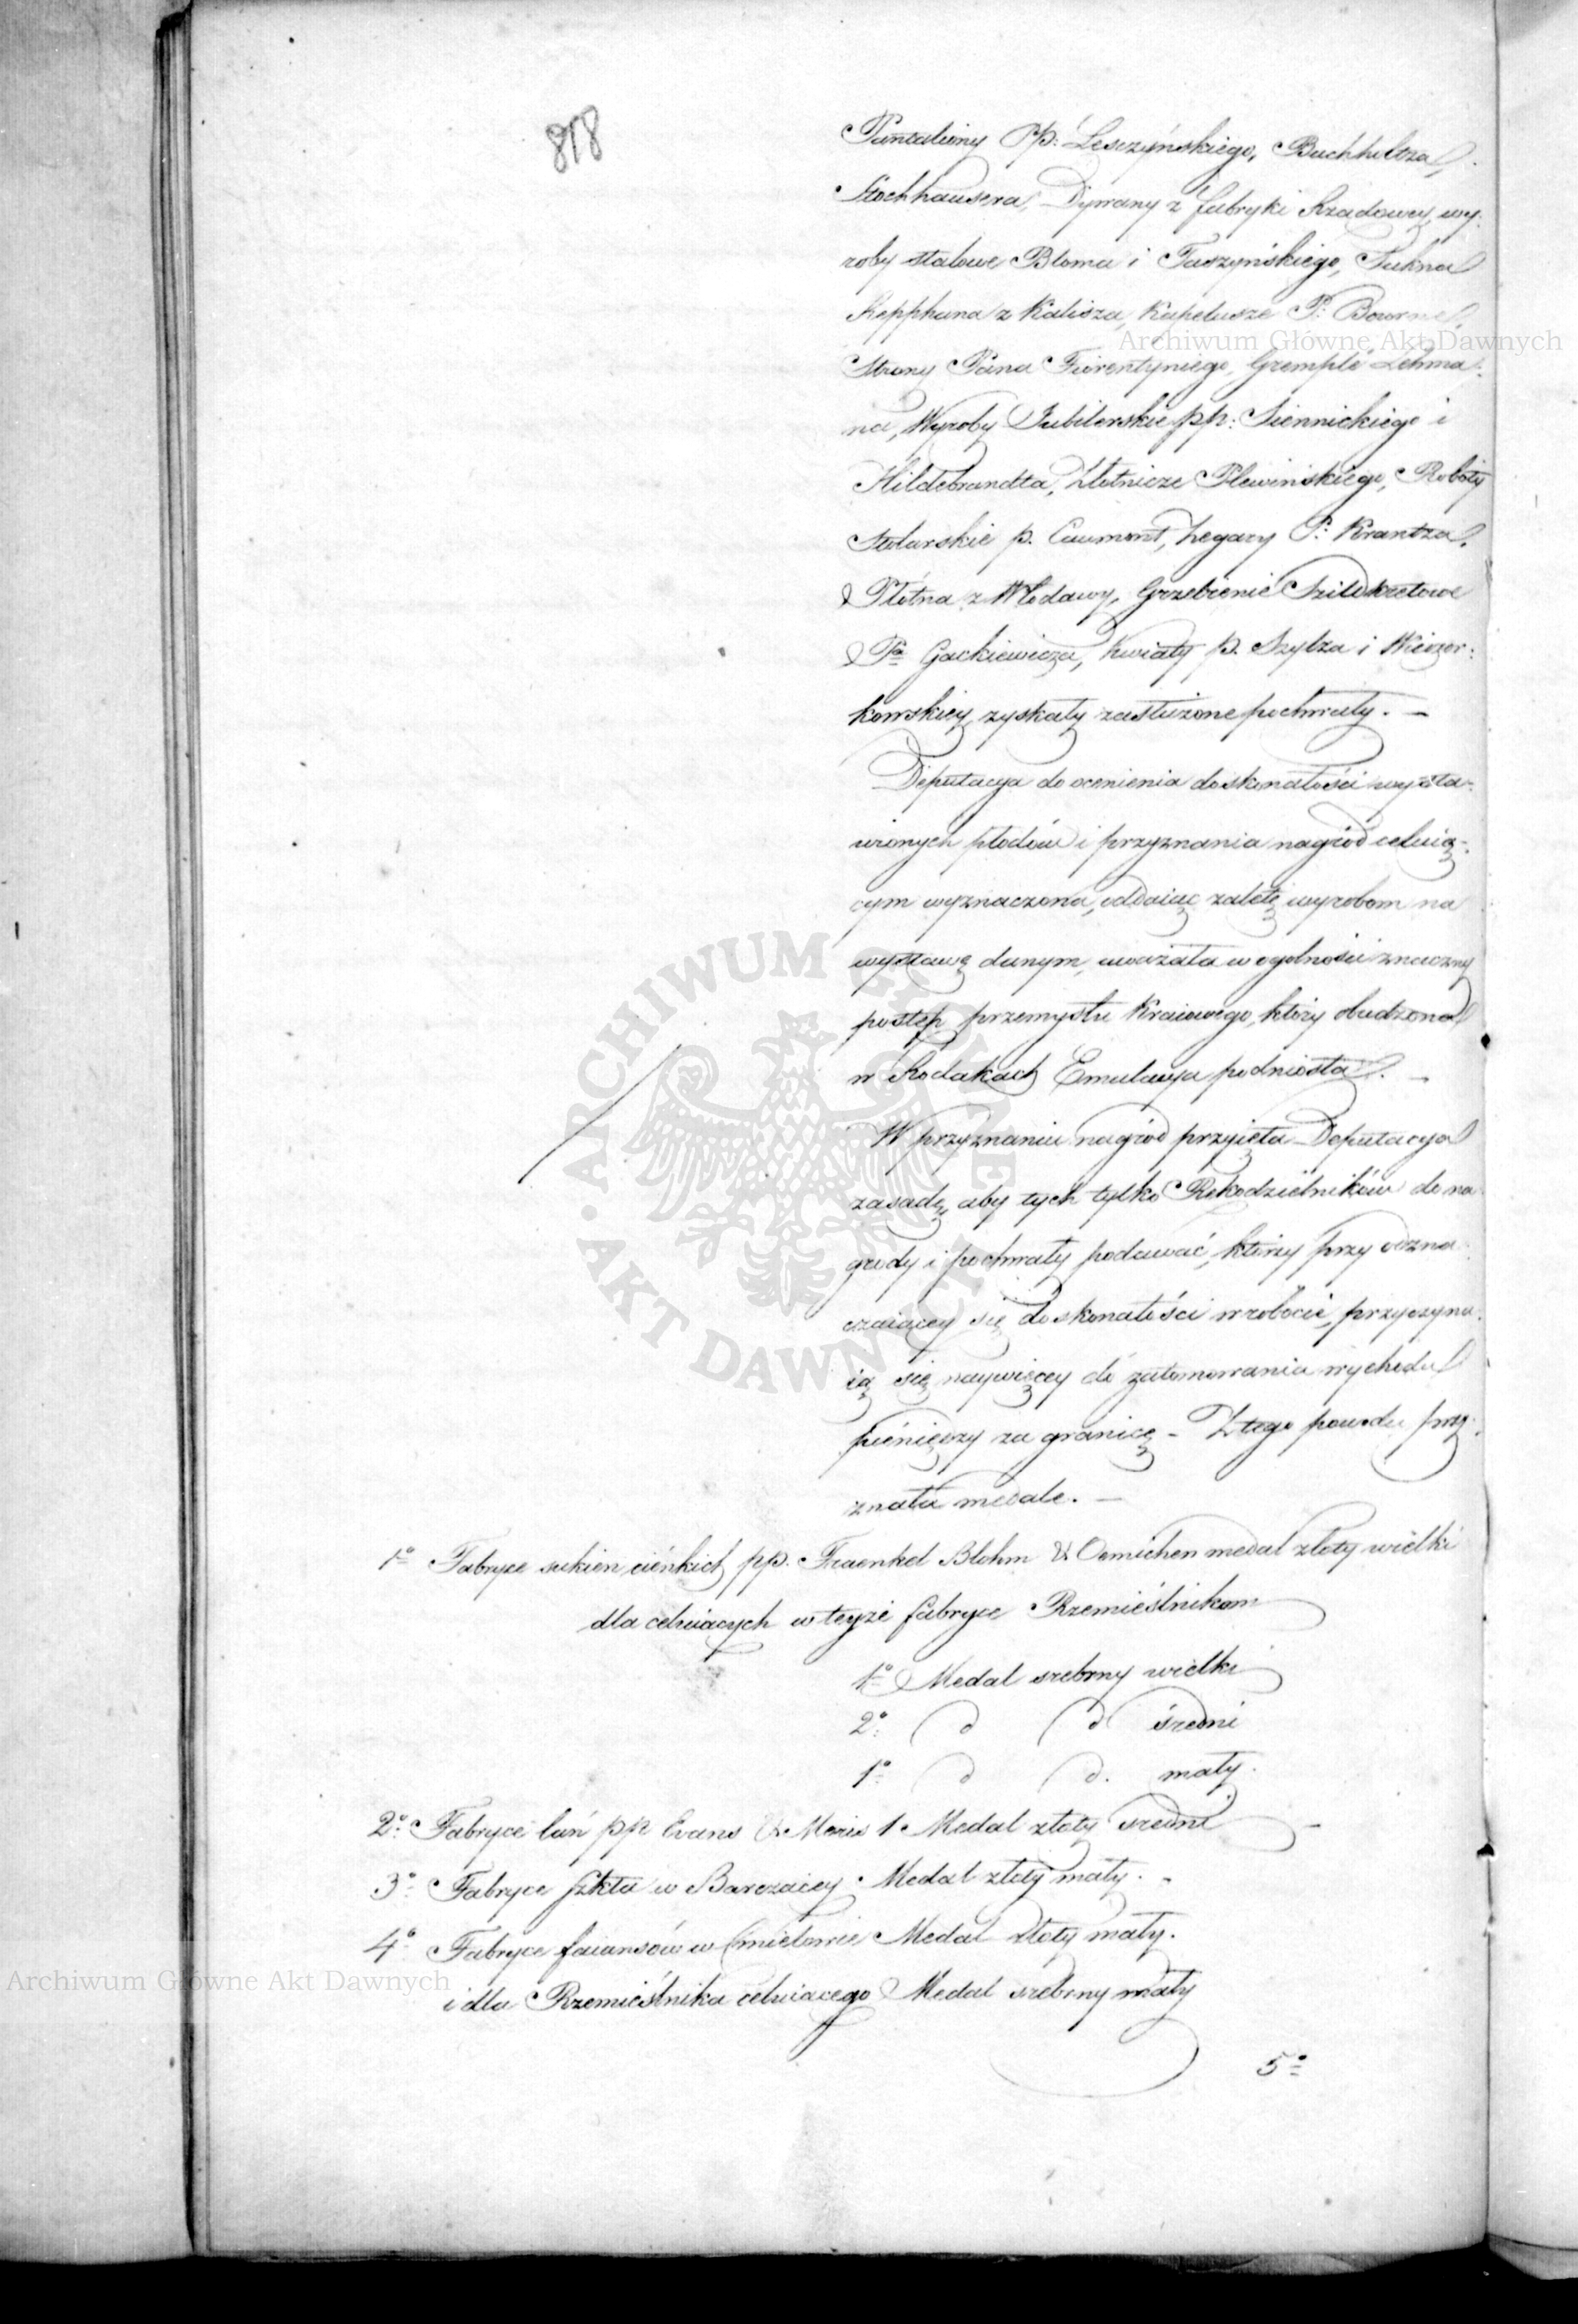 818
Pantaliony Pp: Lesczyńskiego, Buchholtza,
Stochhausera, Dywany z fabryki Rządowey, wy-
roby stalowe Bloma i Taszyńskiego, Sukna
Repphana z Kalisza, Kapelusze P:
Strony Pana Fiorentyniego, Gremple Lehma-
na, Wyroby Jubilerskie pp: Siennickiego i
Hildebrandta, Złotnicze Plewińskiego, Roboty
Stolarskie p. Caumont, Zegary P: Krantza.
Płótna z Włodawy, Grzebienie Szildkretowe
Pa Gackiewicza, Kwiaty p. Szylza i Wieczor-
kowskiey zyskały zasłużone pochwały. —
Deputacya do ocenienia doskonałości wysta-
wionych płodów i przyznania nagród celuią-
cym wyznaczona, oddaiąc zaletę wyrobom na
wystawę danym, uważała w ogolności znaczny
postęp przemysłu Kraiowego, który obudzona
w Rodakach Emulacya podniosła. —
W przyznaniu nagród przyięła Deputacya
zasadę, aby tych tylko Rękodzielników do na-
grody i pochwały podawać, którzy przy odzna-
czaiącey się doskonałości w robocie, przyczynia-
ią się naywięcey do zatamowania wychodu
pieniędzy za granicę - Z tego powodu przy-
znała medale. —
1o Fabryce sukien cieńkich pp. Fraenkel Blohm & Oemichen medal złoty wielki
dla celuiących w teyże fabryce Rzemieślnikom
1o Medal srebrny wielki
2o d d średni
1o d d. mały.
2o Fabryce lań pp Evans & Moris 1 Medal złoty średni —
3o Fabryce szkła w Barczącey Medal złoty mały. -
4o Fabryce faiansów w Cmielowie Medal złoty mały.
i dla Rzemieślnika celuiącego Medal srebrny mały
5o
Archiwum Główne Akt Dawnych
ARCHIWUM GŁÓWNE • AKT DAWNYCH •
Archiwum Główne Akt Dawnych